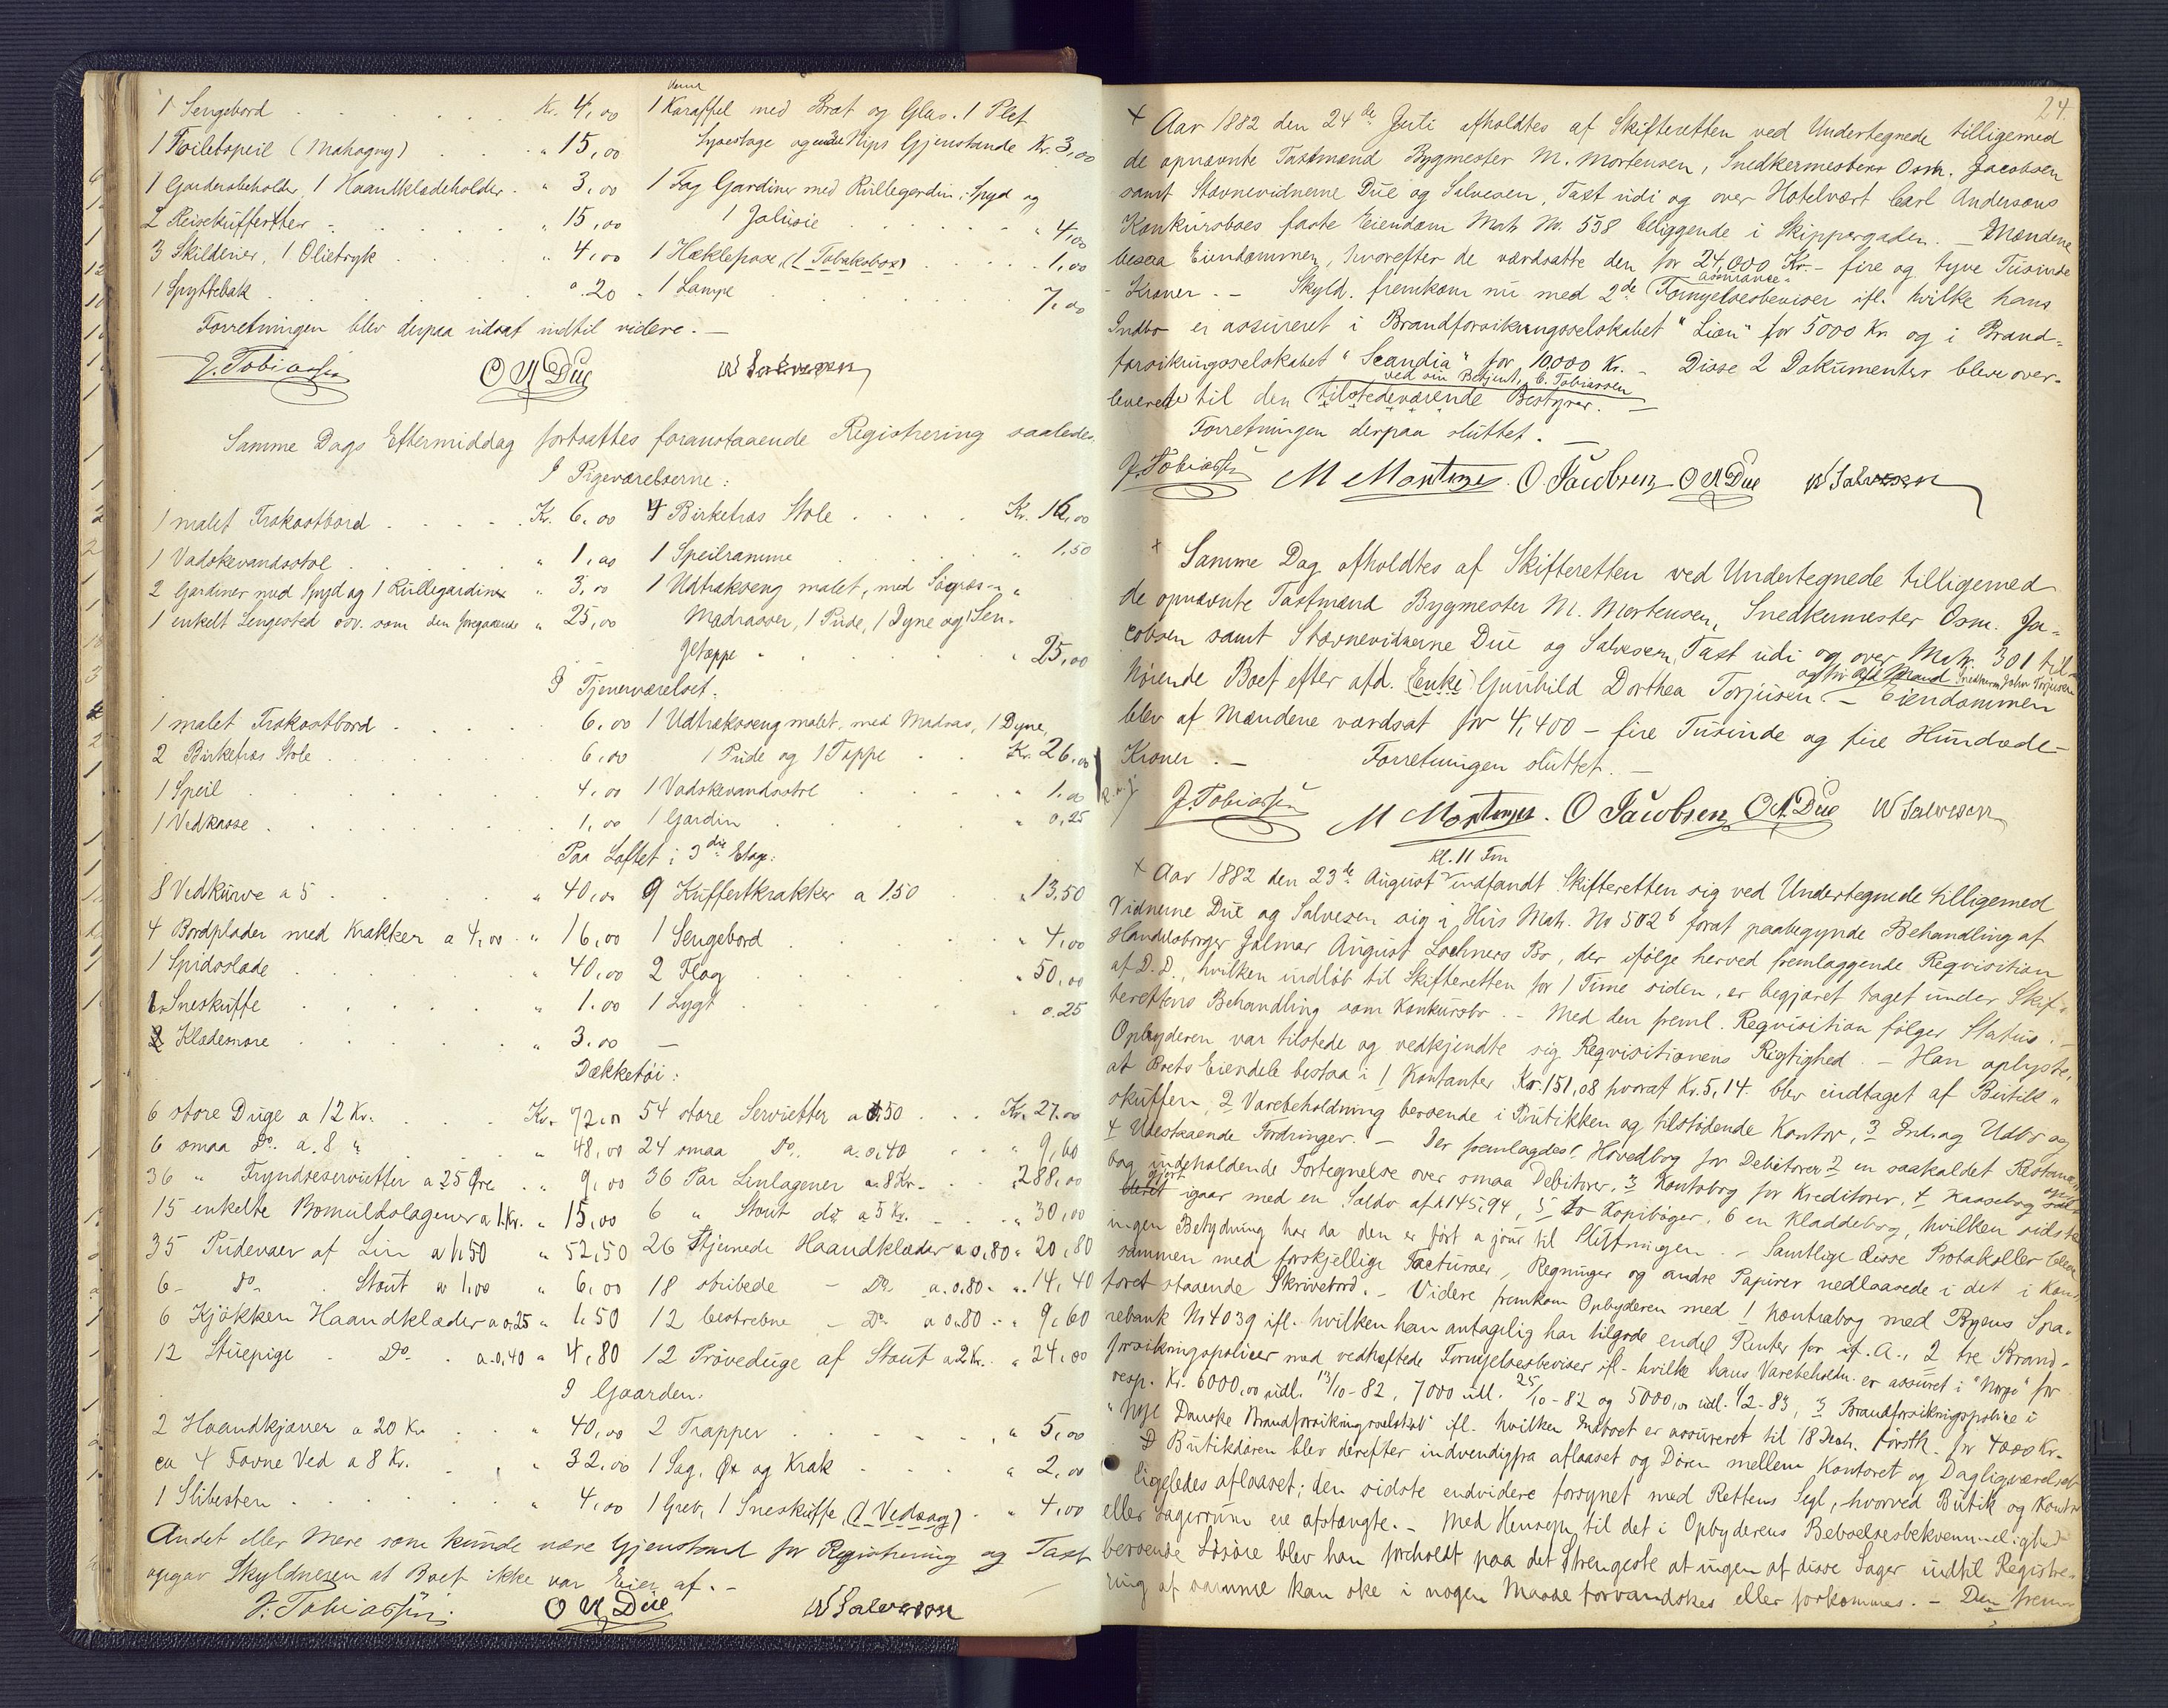 1 Sengebord . . . . . Kr. 4,00
1 Toiletspeil (Mahogny) . . . " 15,00
1 Garderobeholder, 1 Haandklædeholder . " 3,00
2 Reisekufferter . . . . " 15,00
3 Skilderier, 1 Olietryk . . . . " 4,00
1 Spyttebak . . . . . " .20
1 Karaffel med Bræt og Glas. 1 Plet
Lysestage og endel Nips Gjenstande Kr. 3,00
1 Fag Gardiner med Rullegardin, Spyd og
1 Jalusie . . . . . " 4,00
1 Hæklepose, (1 Tobaksboxe) . . . . 1,00
1 Lampe . . . . . 7,00
Forretningen blev derpaa udsat indtil videre. —
J. Tobiassen O N Due W Salvesen
Samme Dags Eftermiddag fortsattes foranstaaende Registrering saaledes.
I Pigeværelserne:
1 malet Frokostbord . . . . . Kr. 6.00
1 Vadskevandsstol . . . . . " 1,00
2 Gardiner med Spyd og 1 Rullegardiner " 3,00
1 enkelt Sengested osv. som den foregaaende " 25,00
4 Birketræs Stole . . . . Kr. 16,00
1 Speilramme . . . . " 1,50
1 Udtrækseng malet, med Søgræs-
Madrasser, 1 Pude, 1 Dyne og 1 Sen-
getæppe . . . . . " 25,00
I Tjenerværelset.
1 malet Frokostbord . . . . 6.00
2 Birketræs Stole . . . . . 6,00
1 Speil . . . . . 4,00
1 Vedkasse . . . . . 1,00
1 Udtrækseng malet, med Madras, 1 Dyne,
1 Pude og 1 Teppe . . Kr. 26,00
1 Vadskevandsstol . . . . " 1.00
1 Gardin . . . . . " 0,25
Paa Loftet i 3die Etage:
8 Vedkurve a 5 . . . . . " 40,00
4 Bordplader med Krakker a 4,00 . " 16,00
1 Spidsslæde . . . . . " 40,00
1 Sneskuffe . . . . . " 1.00
2 Klædesnore . . . . . " 3.00
9 Kuffertkrakker a 1.50 . . " 13,50
1 Sengebord . . . . . " 4,00
2 Flag . . . . . " 50,00
1 Lygt . . . . . " 0.25
Dækketøi:
6 store Duge a 12 Kr. . . . Kr. 72,00
6 smaa Do. a. 8 " . . . " 48,00
36 " Tryndseservietter a 25 Øre . . " 9,00
15 enkelte Bomuldslagener a 1 Kr. . " 15,00
35 Pudevaer af Lin a 1,50 " 52,50
6 - Do. . Stout a 1,00 " 6,00
6 Kjøkken Haandklæder a 0,25 " 1.50
12 Stuepige . Do. . a. 0,40 " 4,80
54 store Servietter a 0,50 . . . Kr. 27.00
24 smaa Do. . a. 0,40 . . " 9,60
36 Par Linlagener a. 8 Kr. . . " 288,00
6 " Stout do. a 5 Kr. . . . " 30,00
26 Stjernede Haandklæder a 0,80 " 20,80
18 stribede - Do. a. 0.80 . " 14,40
12 bestrebne - Do. a 0,80 . " 9,60
12 Prøveduge af Stout a 2 Kr. . " 24,00
I Gaarden.
2 Haandkjærrer a 20 Kr. . . " 40,00
ca 4 Favne Ved a 8 Kr. . . " 32.00
1 Slibesten . . . . . " 4,00
2 Trapper . . . . . " 5,00
1 Sag, Øx og Krak . . . " 2,00
1 Greb, 1 Sneskuffe, (1 Vedsag) . " 4,00
Andet eller mere som kunde være Gjenstand for Registrering og Taxt
opgav Skyldneren at Boet ikke var Eier af. -
J. Tobiassen. O N Due W Salvesen
24.
+ Aar 1882 den 24de Juli afholdtes af Skifteretten ved Undertegnede tilligemed
de opnævnte Taxtmænd Bygmester M. Mortensen, Snedkermester Osm. Jacobsen
samt Stævnevidnerne Due og Salvesen, Taxt udi og over Hotelvært Carl Andersens
Konkursboes faste Eiendom Matr. No. 538 beliggende i Skippergaden. - Mændene
besaa Eiendommen, hvorefter de værdsatte den for 24,000 Kr. - fire og tyve Tusinde
Kroner. - Skyld. fremkom nu med 2de assurance-Fornyelsesbeviser ifl. hvilke hans
Indbo er assureret i Brandforsikringsselskabet "Lion" for 5000 Kr. og i Brand-
forsikringsselskabet "Scandia" for 10,000 Kr. - Disse 2 Dokumenter bleve over-
ved sin Betjent, C. Tobiassen
leverede til den tilstedeværende Bestyrer. -
Forretningen derpaa sluttet. -
J. Tobiassen M Mortensen. O. Jacobsen O N Due W Salvesen
+ Samme Dag afholdtes af Skifteretten ved Undertegnede tilligemed
de opnævnte Taxtmænd Bygmester M. Mortensen, Snedkermester Osm. Ja-
cobsen samt Stævnevidnerne Due og Salvesen, Taxt udi og over Matr. 301 til-
hørende Boet efter afd. (Enke) Gunhild Dorthea Torjusen og hir afd. Mand Snedkerm. John Torjusen - Eiendommen
blev af Mændene værdsat for 4,400 - fire Tusinde og fire Hundrede -
Kroner. - Forretningen sluttet. -
J Tobiassen M Mortensen. O Jacobsen O N. Due W Salvesen
Kl. 11 Fm
+ Aar 1882 den 23de August indfandt Skifteretten sig ved Undertegnede tilligemed
Vidnerne Due og Salvesen sig i Hus Matr. No 502b forat paabegynde Behandling af
Handelsborger Jalmar August Lochners Bo, der ifølge herved fremlæggende Reqvisition
af D.D., hvilken indløb til Skifteretten for 1 Time siden, er begjæret taget under Skif-
terettens Behandling som Konkursbo. - Med den freml. Reqvisition følger Status. -
Opbyderen var tilstede og vedkjendte sig Reqvisitionens Rigtighed. - Han oplyste,
at Boets Eiendele bestaa i 1 Kontanter Kr. 151,08 hvoraf Kr. 5,14. blev indtaget af Butik-
skuffen, 2 Varebeholdning beroende i Butikken og tilstødende Kontor, 3 Indrag Udbo og
4 Udestaaende Fordringer. - Der fremlagdes 1 Hovedbog for Debitorer 2 en saakaldet Restance-
bog indeholdende Fortegnelse over smaa Debitorer, 3 Kontobog for Kreditorer, 4 Kassebog
gjort igaar med en Saldo af kr 145,94, 5 to Kopibøger, 6 en Kladdebog, hvilken sidste
ingen Betydning har da den er ført a jour til Slutningen. - Samtlige disse Protokoller bleve
sammen med forskjellige Facturaer, Regninger og andre Papirer nedlaasede i det i Kon-
toret staaende Skrivebord. - Videre fremkom Opbyderen med 1 Kontrabog med Byens Spa-
rebank No 4039 ifl. hvilken han antagelig har tilgode endel Renter for if. A., 2 tre Brand-
forsikringspoliser med vedhæftede Fornyelsesbeviser ifl. hvilke hans Varebeholdn. er assuret i "Norge" for
resp. Kr. 6000,00 udl. 13/10-82, 7000 udl. 25/10-82 og 5000,00 udl. 1/2-83, 3 Brandforsikringspolice i
"Nye Danske Brandforsikringsselskab" ifl. hvilken Indboet er assureret til 18 Decb. førstk. for 4000 Kr.-
Butikdøren blev derefter indvendigfra aflaaset og Døren mellem Kontoret og Dagligværelset
ligeledes aflaaset; den sidste endvidere forsynet med Rettens Segl, hvorved Butik og Kontor
eller Lagerrum ere afstængte. - Med Hensyn til det i Opbyderens Beboelsesbekvemmelighed
beroende Løsøre blev han foreholdt paa det Strengeste at ingen af disse Sager indtil Registre-
ring af samme kan ske i nogen Maade forvandskes eller forkommes. - Den frem-